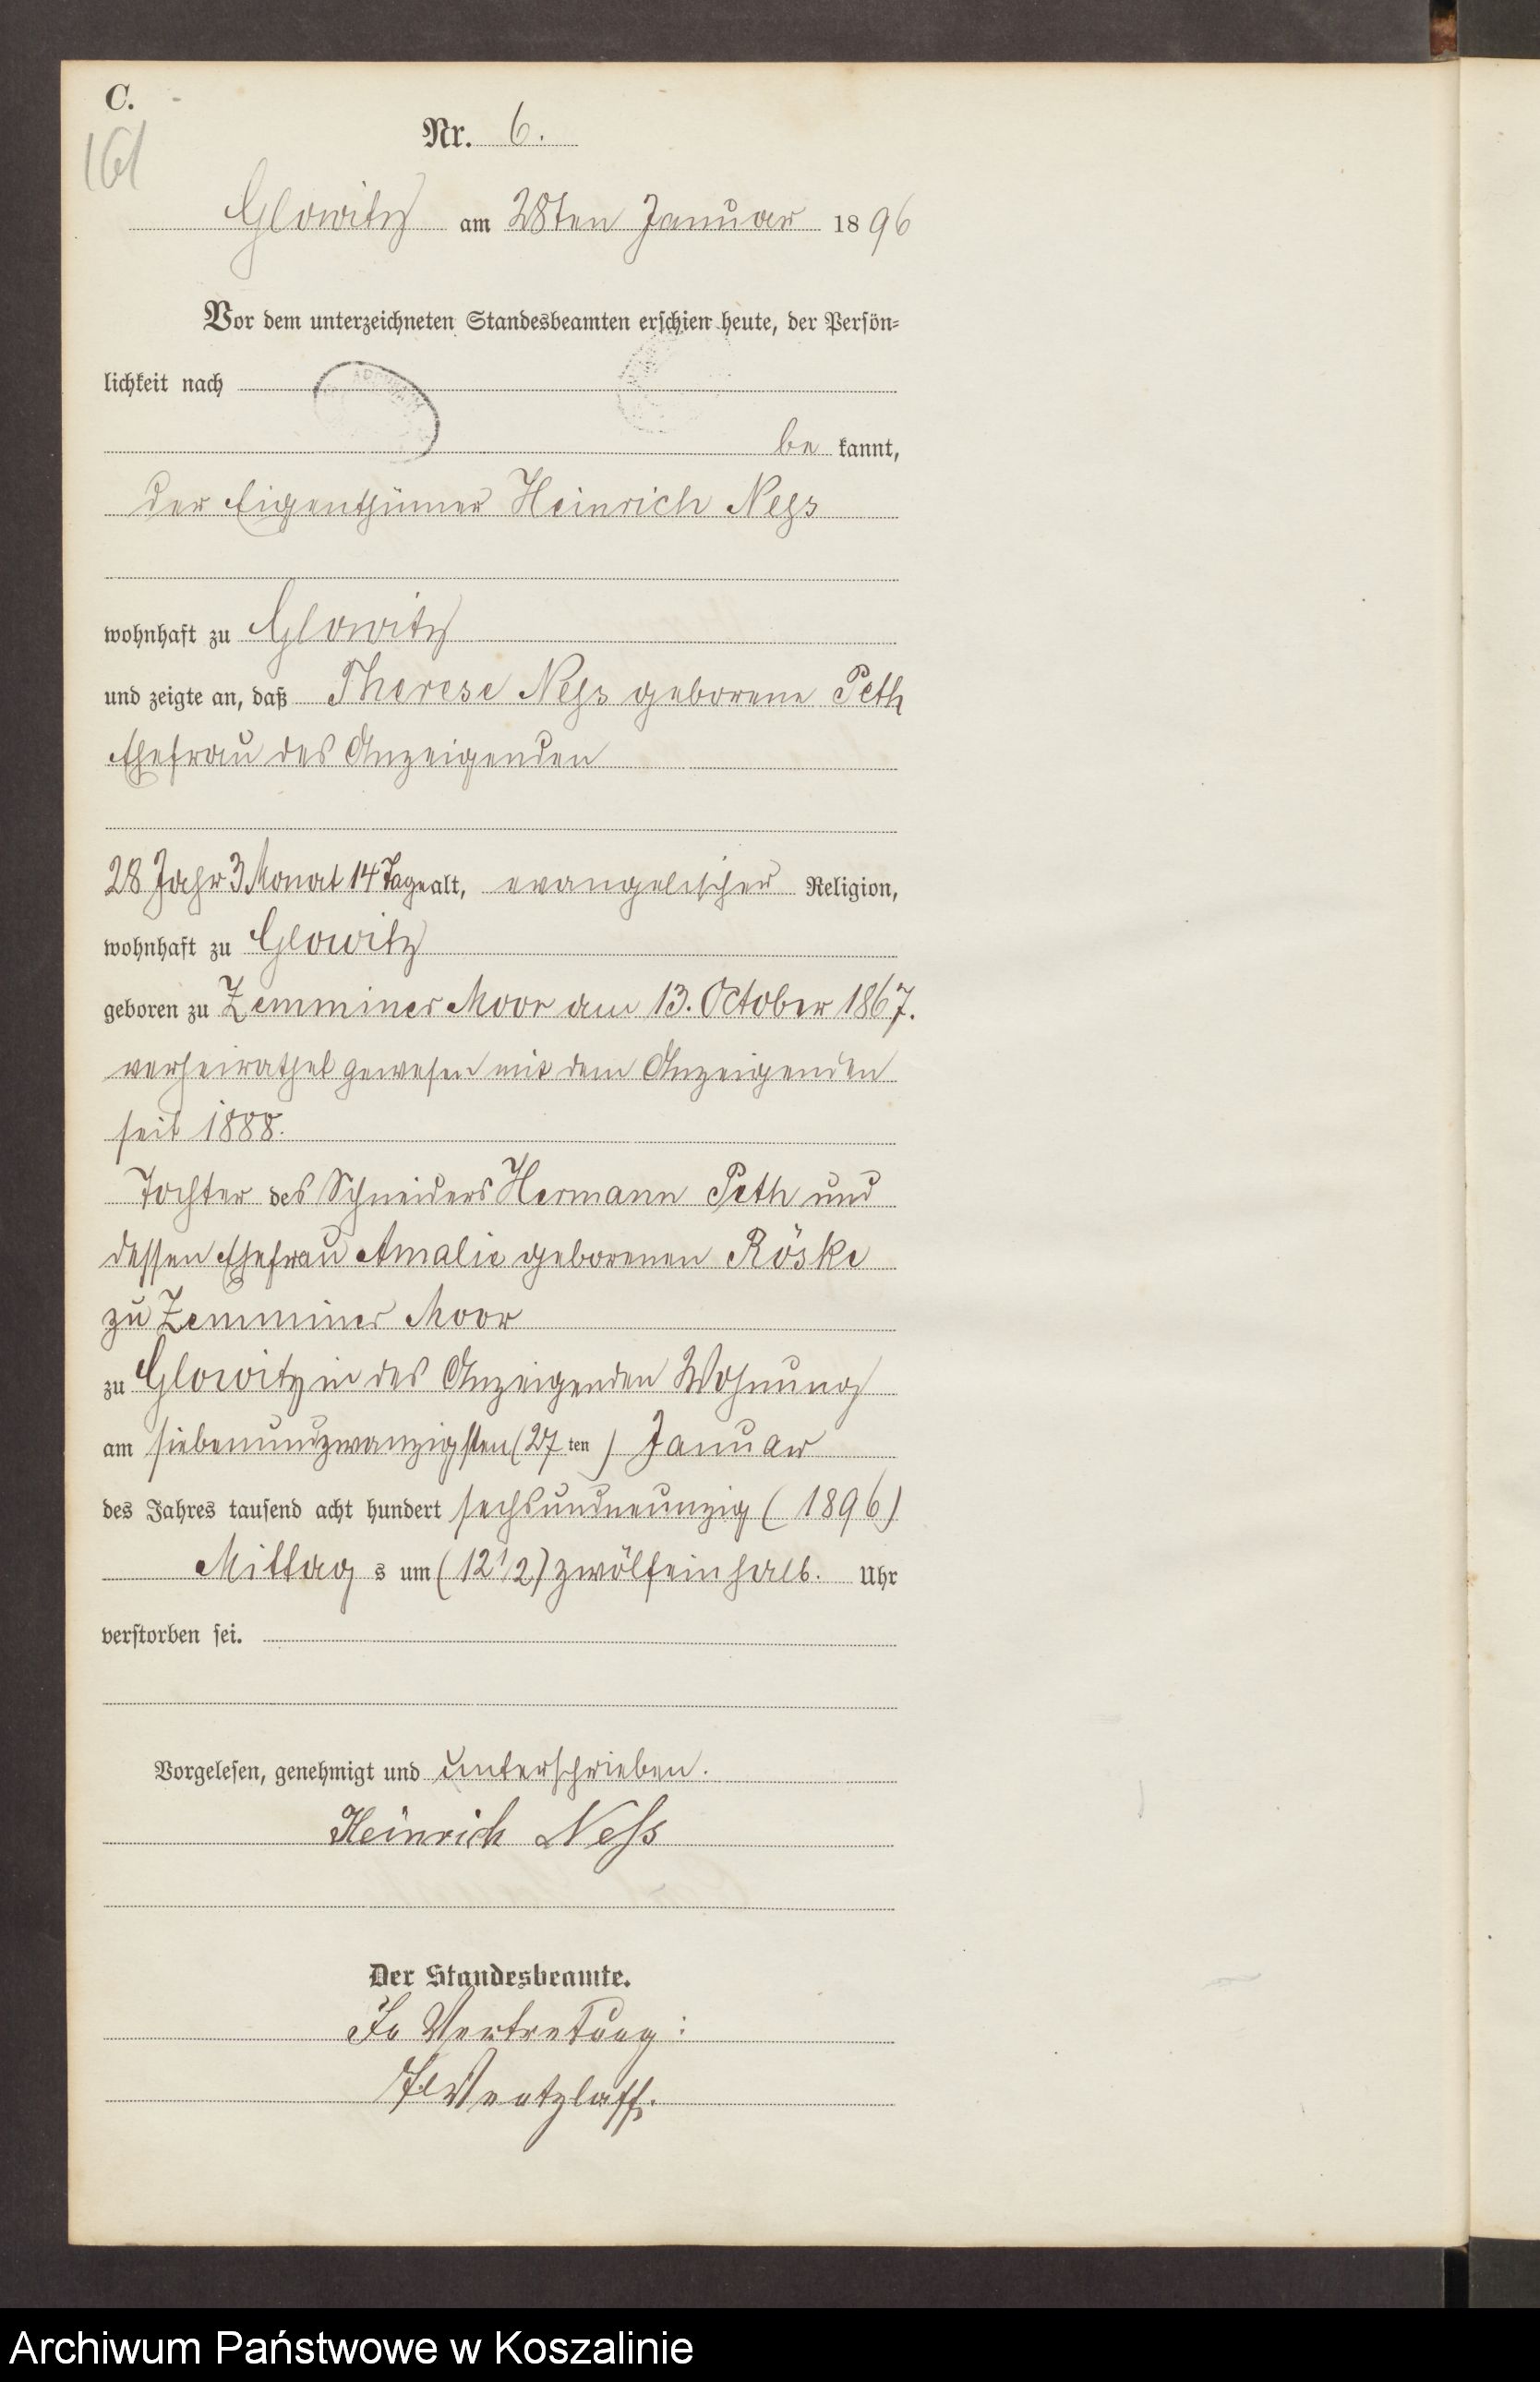 C.
161
Nr. 6.
Glowitz am 28ten Januar 1896
Vor dem unterzeichneten Standesbeamten erschien heute, der Persön=
lichkeit nach
be kannt,
der Eigenthümer Heinrich Ness
wohnhaft zu Glowitz
und zeigte an, daß Therese Ness geborene Peth
Ehefrau des Anzeigenden
28 Jahr 3 Monat 14 Tage alt, evangelischer Religion,
wohnhaft zu Glowitz
geboren zu Zemminer Moor am 13. October 1867.
verheirathet gewesen mit dem Anzeigenden
seit 1888.
Tochter des Schneiders Hermann Peth und
dessen Ehefrau Amalie geborenen Röske
zu Zemminer Moor
zu Glowitz in des Anzeigenden Wohnung
am siebenundzwanzigsten (27 ten) Januar
des Jahres tausend acht hundert sechsundneunzig (1896)
Mittag s um (12 1/2) zwölfeinhalb. Uhr
verstorben sei.
Vorgelesen, genehmigt und unterschrieben.
Heinrich Ness
Der Standesbeamte.
In Vertretung:
Wentzlaff.
Archiwum Państwowe w Koszalinie